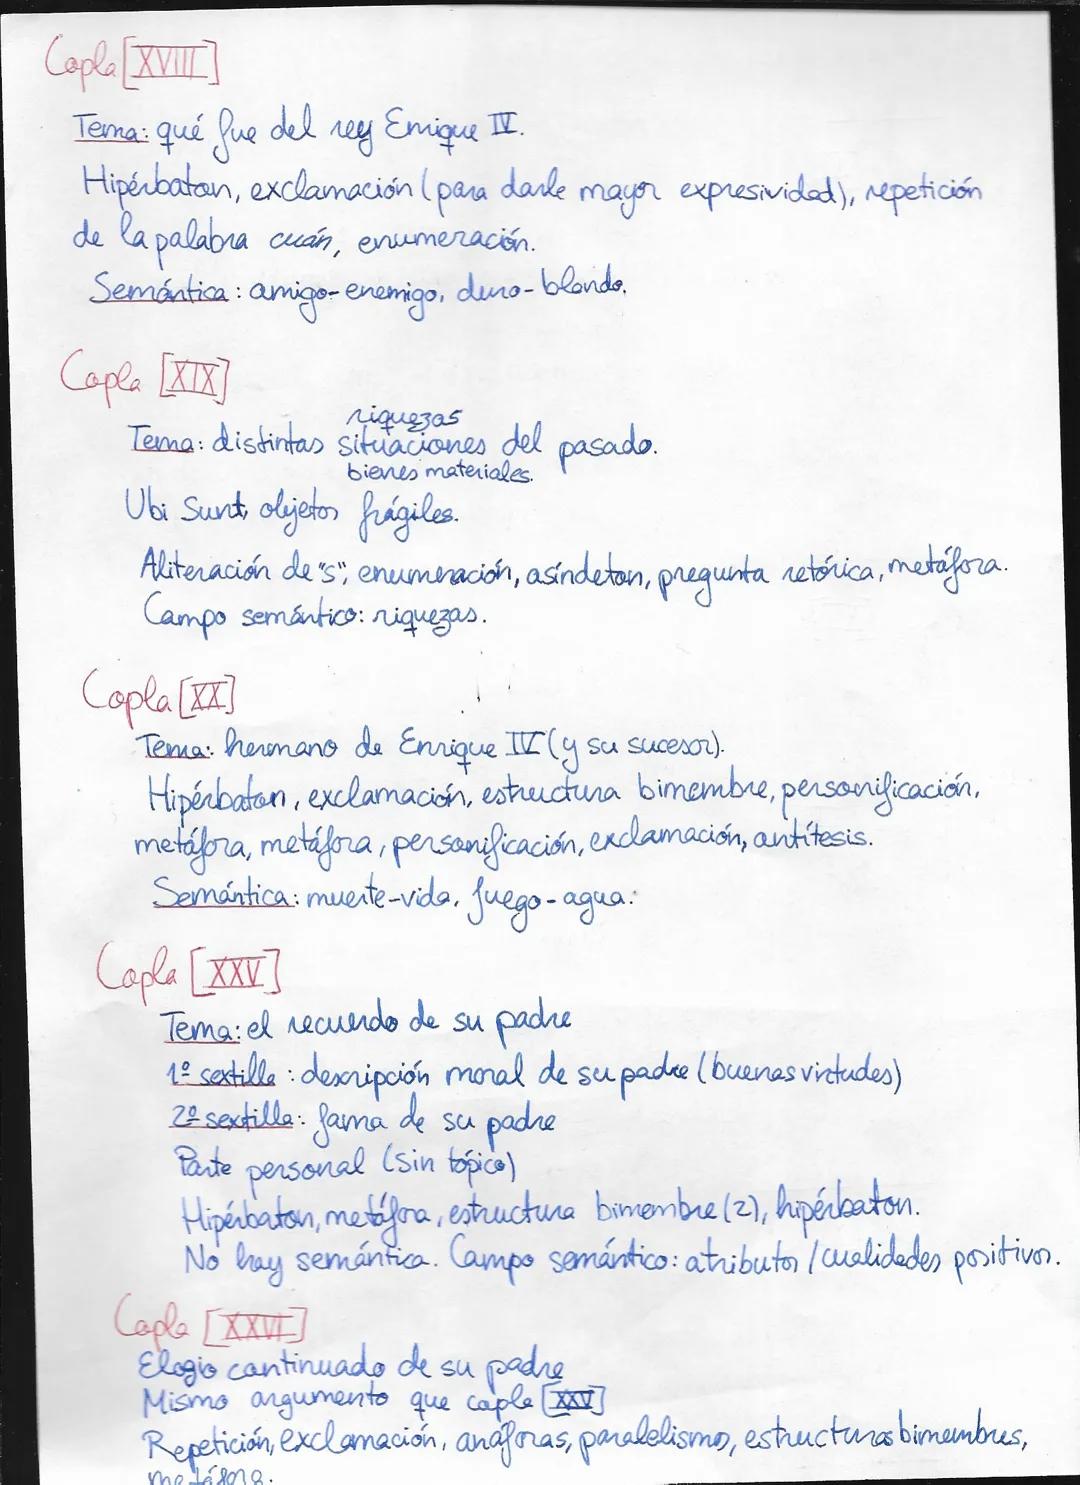 Copla [XVIII]
Tema: qué fue del rey Enrique IV.
Hipérbaton, exclamación (para darle mayor expresividad), repetición
de la palabra cuán, enumeración.
Semántica: amigo-enemigo, duro-blando.
Copla [XIX]
riquezas
Tema: distintas situaciones del pasado.
bienes materiales.
Ubi Sunt, objetos frágiles.
Aliteración de "s", enumeración, asíndeton, pregunta retórica, metáfora.
Campo semántico: riquezas.
Copla [XX]
Tema: hermano de Enrique IV (y su sucesor).
Hipérbaton, exclamación, estructura bimembre, personificación,
metáfora, metáfora, personificación, exclamación, antítesis.
Semántica: muerte-vida, fuego-agua.
Copla [XXV]
Tema: el recuerdo de su padre
1º sextilla: descripción moral de su padre (buenas virtudes)
2º sextilla: fama de su padre
Parte personal (sin tópico)
Hipérbaton, metáfora, estructura bimembre (2), hipérbaton.
No hay semántica. Campo semántico: atributos / cualidades positivos.
Copla [XXVI]
Elogio continuado de su padre
Mismo argumento que copla [XXV]
Repetición, exclamación, anáforas, paralelismo, estructuras bimembres,
metáfora.